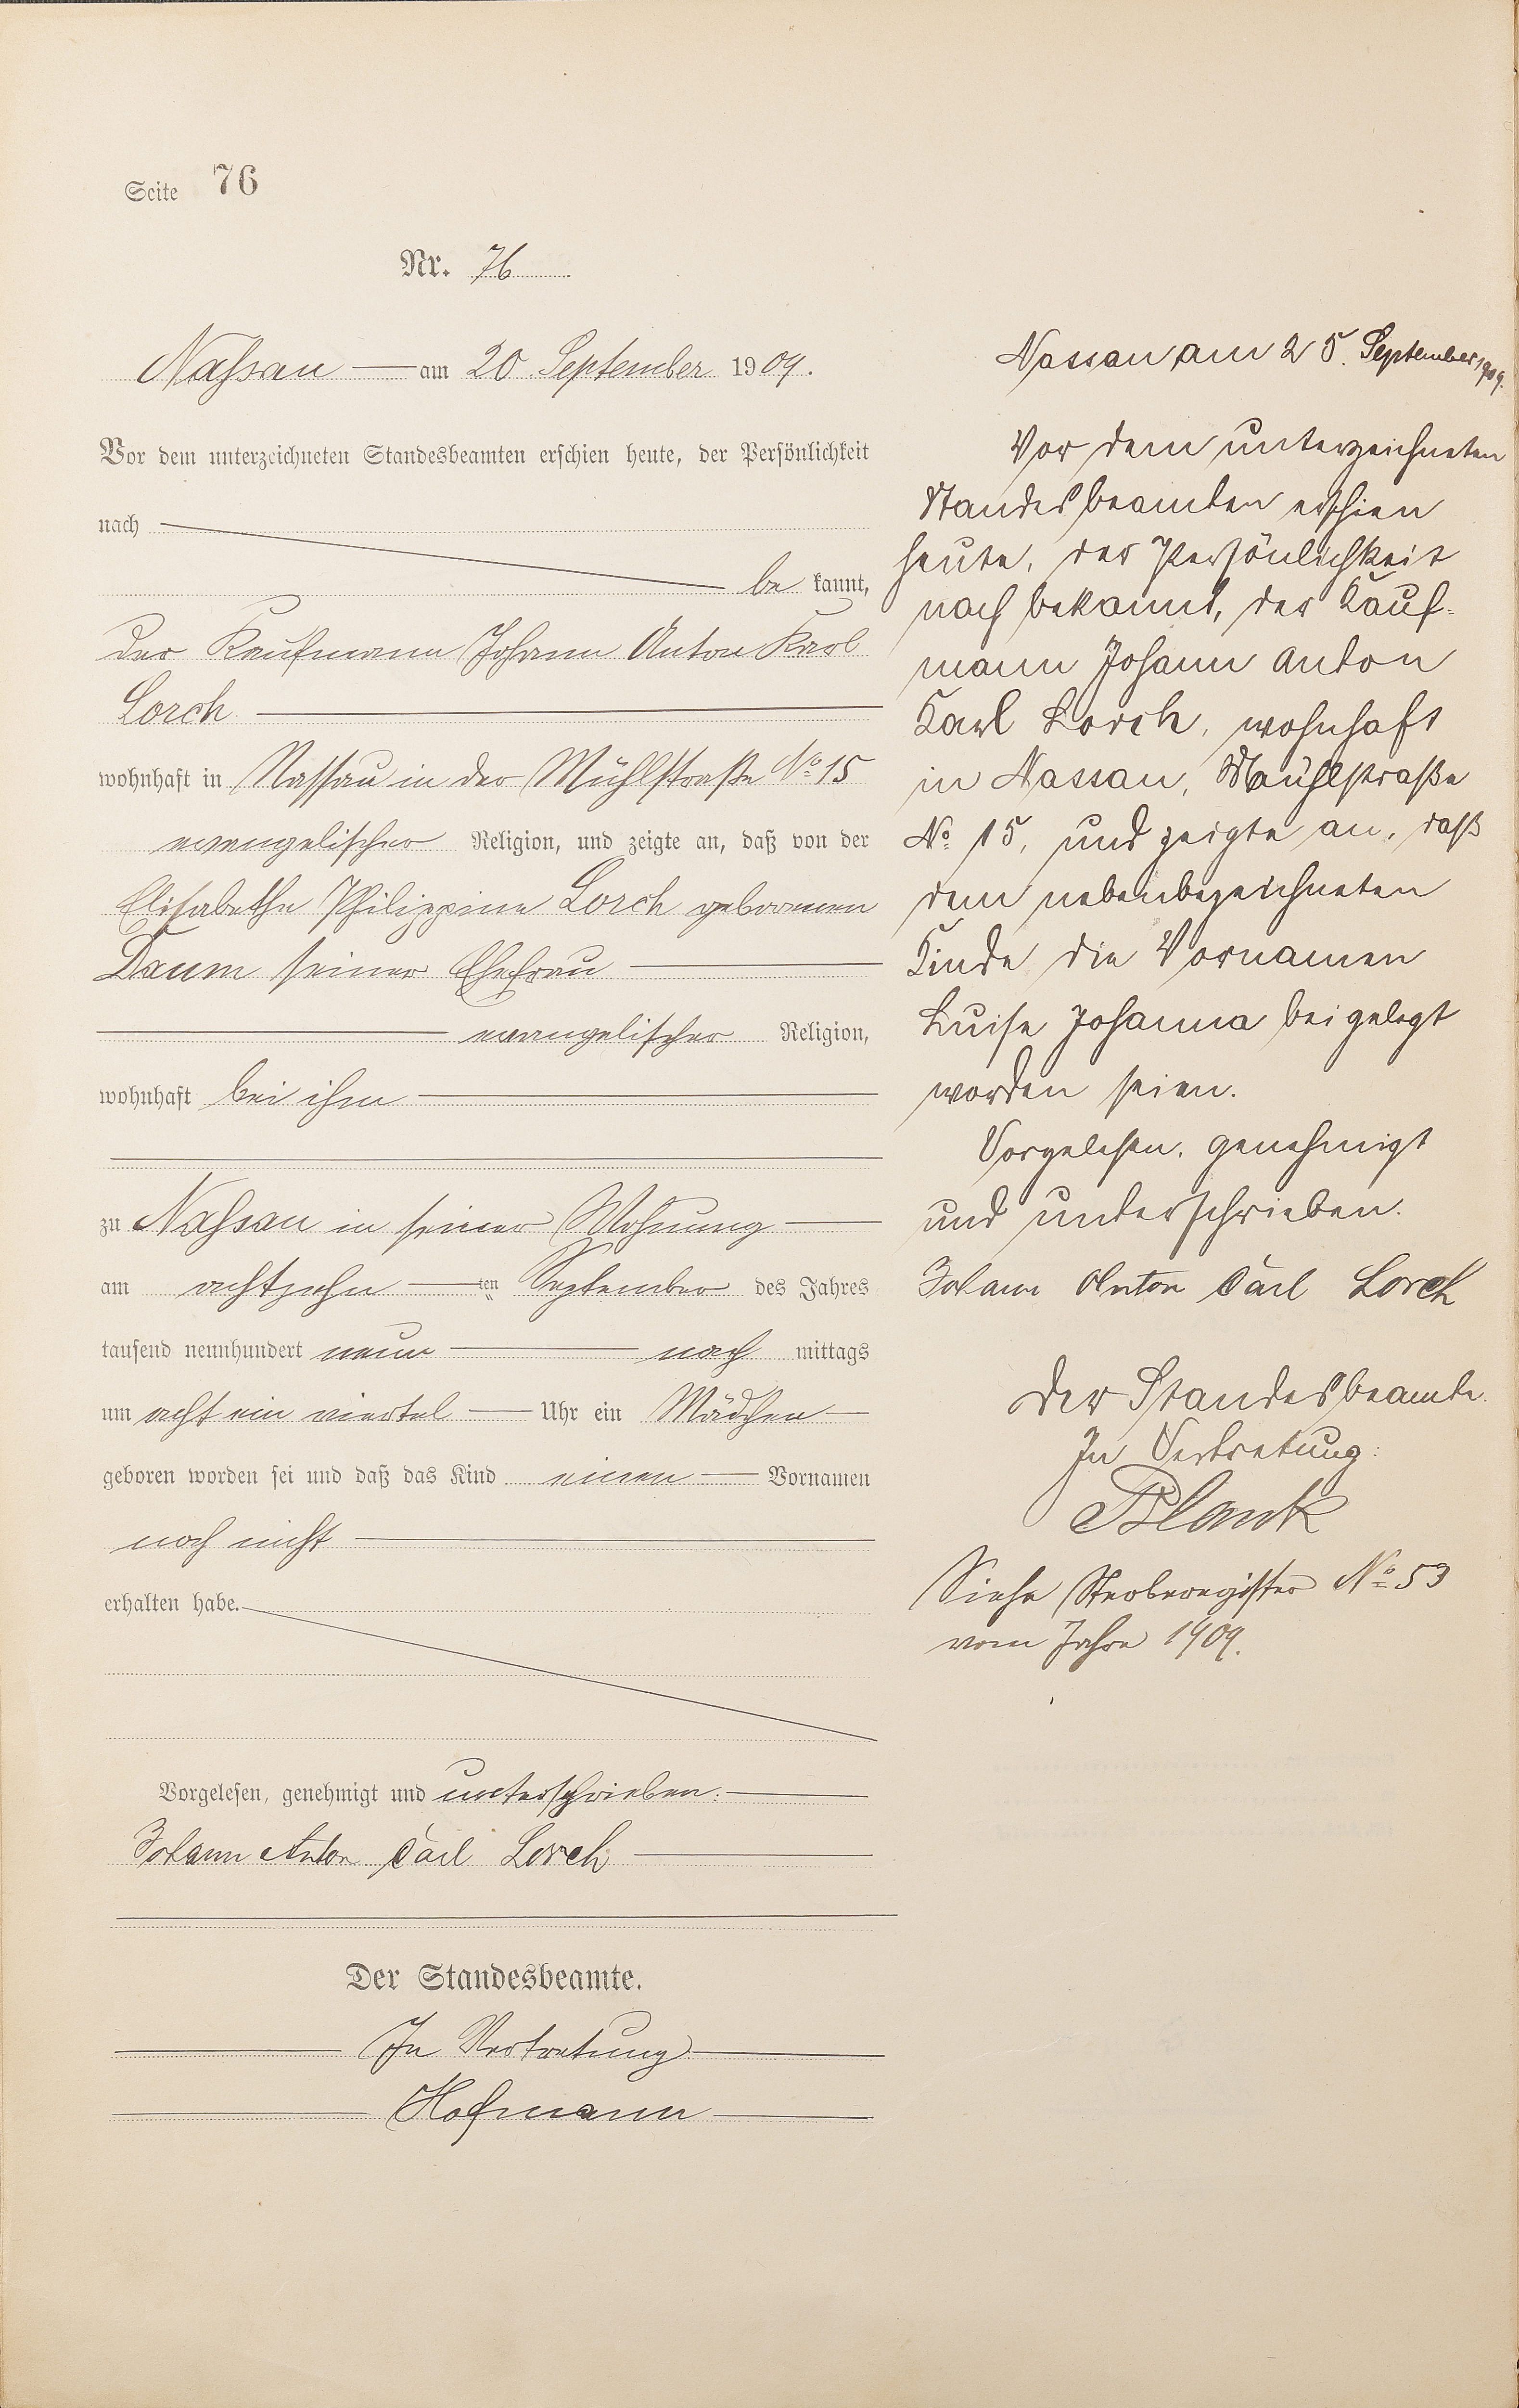 Seite 76
Nr. 76
Nassau am 20 September 1909.
Vor dem unterzeichneten Standesbeamten erschien heute, der Persönlichkeit
nach
be kannt,
der Kaufmann Johann Anton Karl
Lorch
wohnhaft in Nassau in der Mühlstraße No 15
evangelischer Religion, und zeigte an, daß von der
Elisabethe Philippine Lorch geborenen
Daum seiner Ehefrau
evangelischer Religion,
wohnhaft bei ihm
zu Nassau in seiner Wohnung
am achtzehn ten September des Jahres
tausend neunhundert neun nach mittags
um acht ein viertel Uhr ein Mädchen
geboren worden sei und daß das Kind einen Vornamen
noch nicht
erhalten habe.
Vorgelesen, genehmigt und unterschrieben.
Johann Anton Carl Lorch
Der Standesbeamte.
In Vertretung
Hofmann
Nassau am 25. September 1909.
Vor dem unterzeichneten
Standesbeamten erschien
heute, der Persönlichkeit
nach bekannt, der Kauf-
mann Johann Anton
Karl Lorch, wohnhaft
in Nassau, Mühlstraße
No 15, und zeigte an, daß
dem nebenbezeichneten
Kinde die Vornamen
Luise Johanna beigelegt
worden seien.
Vorgelesen, genehmigt
und unterschrieben.
Johann Anton Carl Lorch
Der Standesbeamte.
In Vertretung:
Blank
Siehe Sterberegister No 53
vom Jahre 1909.